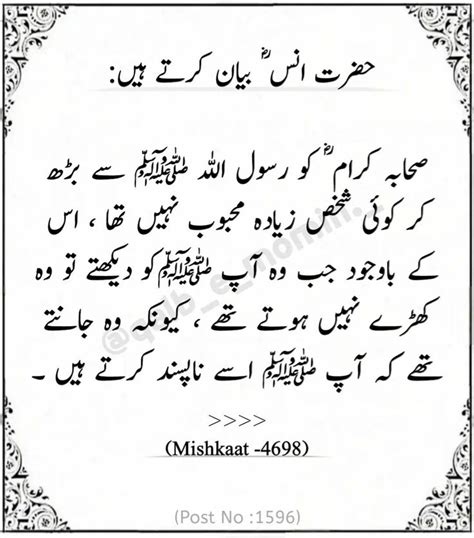 حضرت انس ؓ بیان کرتے ہیں:
صحابہ کرام ؓ کو رسول اللہ ﷺ سے بڑھ
کر کوئی شخص زیادہ محبوب نہیں تھا ، اس
کے باوجود جب وہ آپ ﷺ کو دیکھتے تو وہ
کھڑے نہیں ہوتے تھے ، کیونکہ وہ جانتے
تھے کہ آپ ﷺ اسے ناپسند کرتے ہیں ۔
>>>>
(Mishkaat -4698)
@qalb_e_momin..
(Post No :1596)